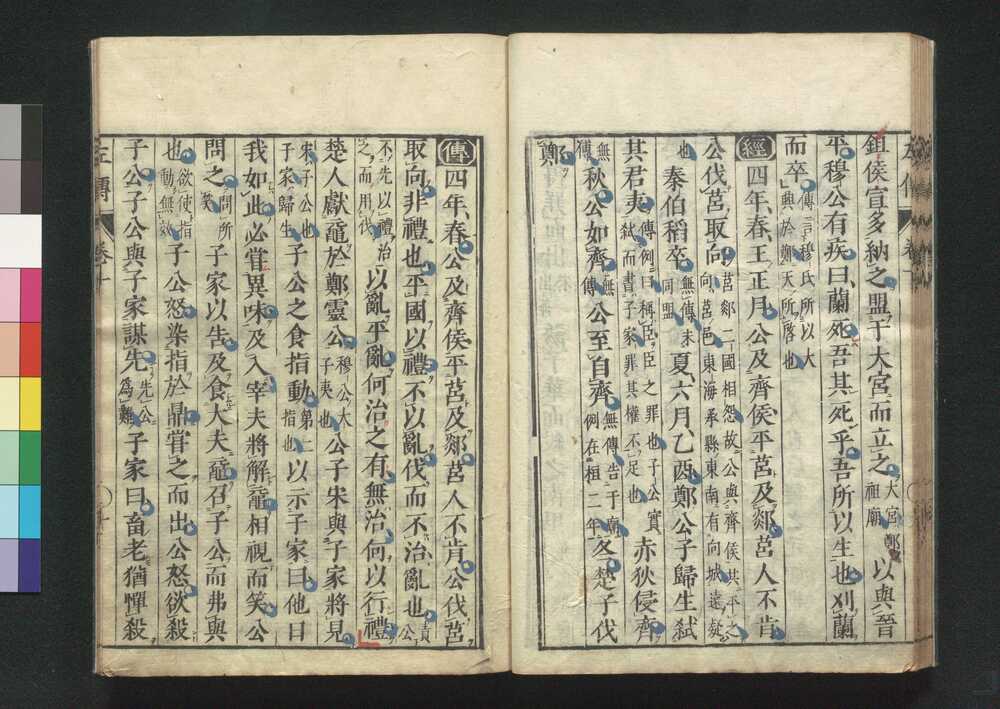 左傳 卷十
鉏侯宣多納之盟于大宮而立之大宮鄭祖廟以與晉
平穆公有疾曰蘭死吾其死乎吾所以生也刈蘭
而卒傳言穆氏所以大興於鄭天所啓也
經四年春王正月公及齊侯平莒及郯莒人不肯
公伐莒取向莒郯二國相怨故公與齊侯共平之向莒邑東海承縣東南有向城遠疑
也秦伯稻卒無傳未同盟夏六月乙酉鄭公子歸生弒
其君夷傳例曰稱臣臣之罪也子公實弒而書子家罪其權不足也赤狄侵齊
無傳秋公如齊無傳公至自齊無傳告于廟例在桓二年冬楚子伐
鄭
傳四年春公及齊侯平莒及郯莒人不肯公伐莒
取向非禮也平國以禮不以亂伐而不治亂也責公
不先以禮治之而用伐以亂平亂何治之有無治何以行禮
楚人獻黿於鄭靈公穆公大子夷也公子宋與子家將見
宋子公也子家歸生子公之食指動第二指也以示子家曰他日
我如此必嘗異味及入宰夫將解黿相視而笑公
問之問所笑子家以告及食大夫黿召子公而弗與
也欲使指動無效子公怒染指於鼎嘗之而出公怒欲殺
子公子公與子家謀先先公為難子家曰畜老猶憚殺
左傳 卷十